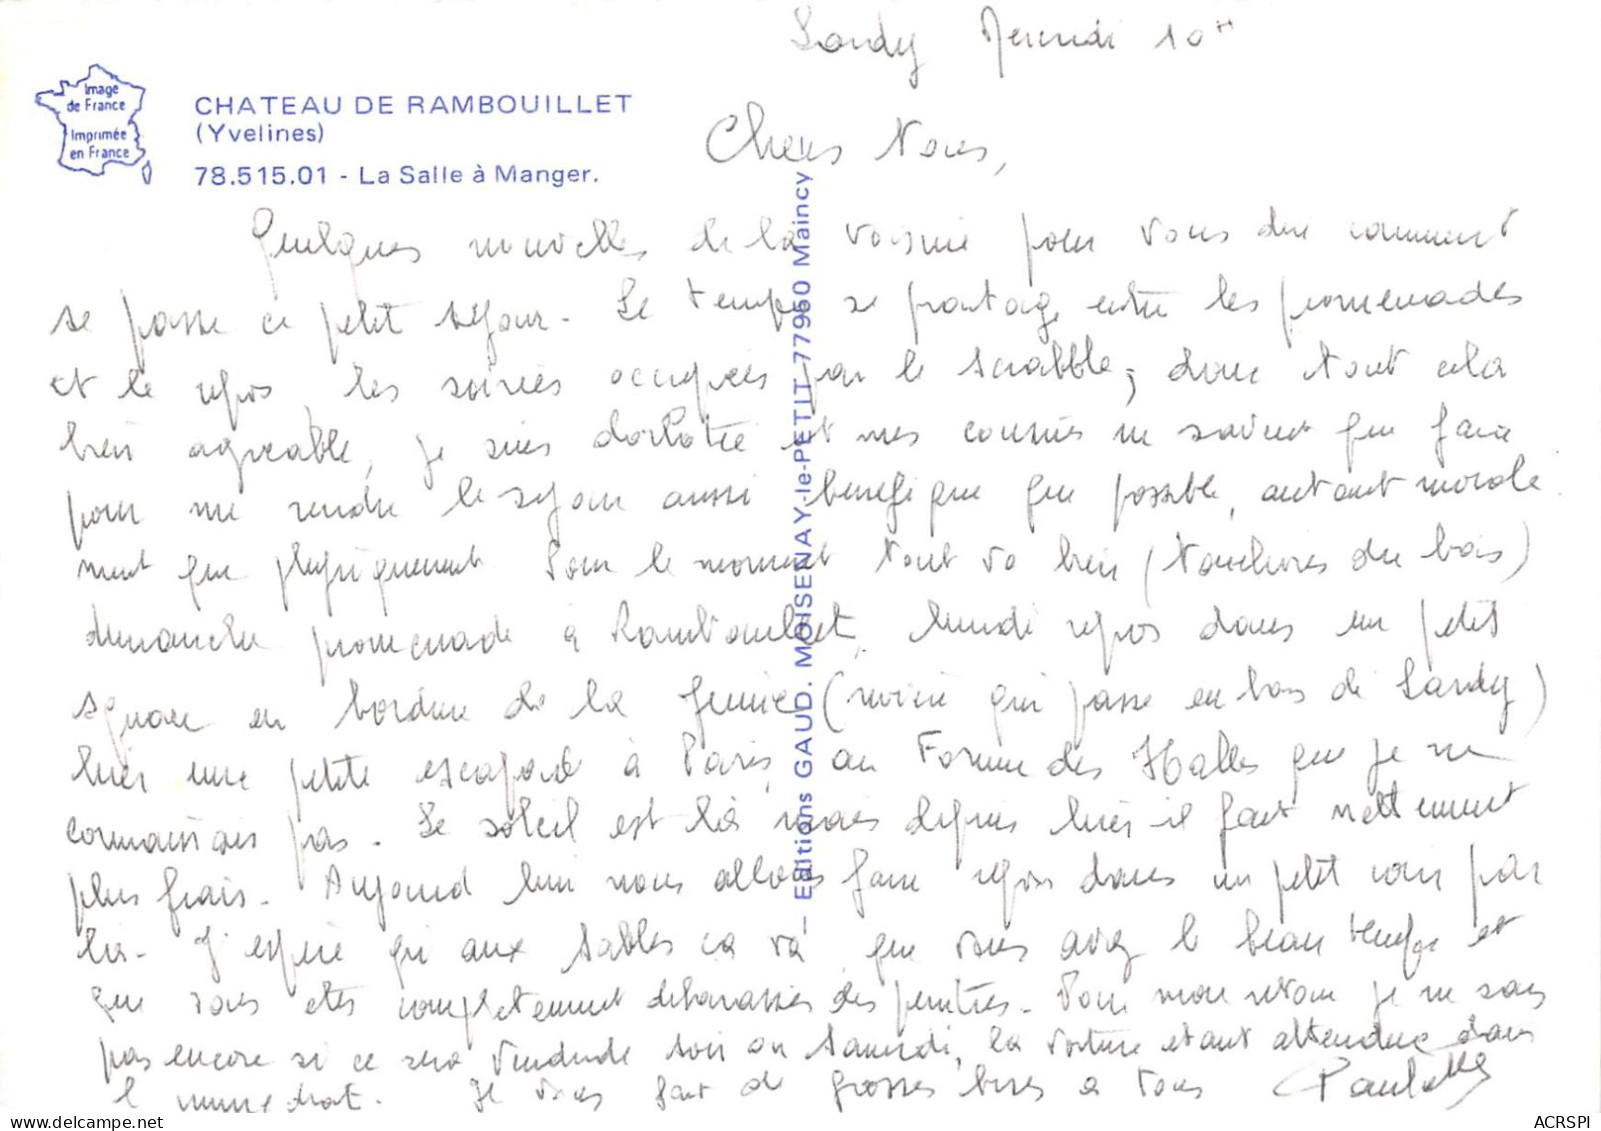 Sandy Mercredi 10H
Image
de France
Imprimée
en France
CHATEAU DE RAMBOUILLET
(Yvelines)
78.515.01 - La Salle à Manger.
Chers Vous,
Quelques nouvelles de la pour vous dire comment
se passe ce petit séjour. Le temps se partage entre les promenades
et le repos, les soirées occupées par le scrabble; donc tout cela
bien agréable, je suis dorlotée et mes cousins ne savent que faire
pour me rendre le séjour aussi bénéfique que possible, autant morale
ment que physiquement. Pour le moment tout va bien (touchons du bois)
dimanche promenade à Rambouillet, lundi repos dans un petit
square en bordure de la (rivière qui passe en bas de Sandy)
hier une petite escapade à Paris, au Forum des Halles que je ne
connaissais pas. Le soleil est là mais depuis hier il fait nettement
plus frais. Aujourd'hui nous allons faire repos dans un petit coin par
là. J'espère qu'aux Sables ça va, que vous avez le beau temps et
que vous êtes complètement débarassés des peintres. Pour mon retour je ne sais
pas encore si ce sera Vendredi soir ou Samedi, la voiture étant attendue dans
l'immédiat. Je vous fait de grosses bises à tous Paulette
— Editions GAUD. MOISENAY-le-PETIT 77950 Maincy —
ACRSPI